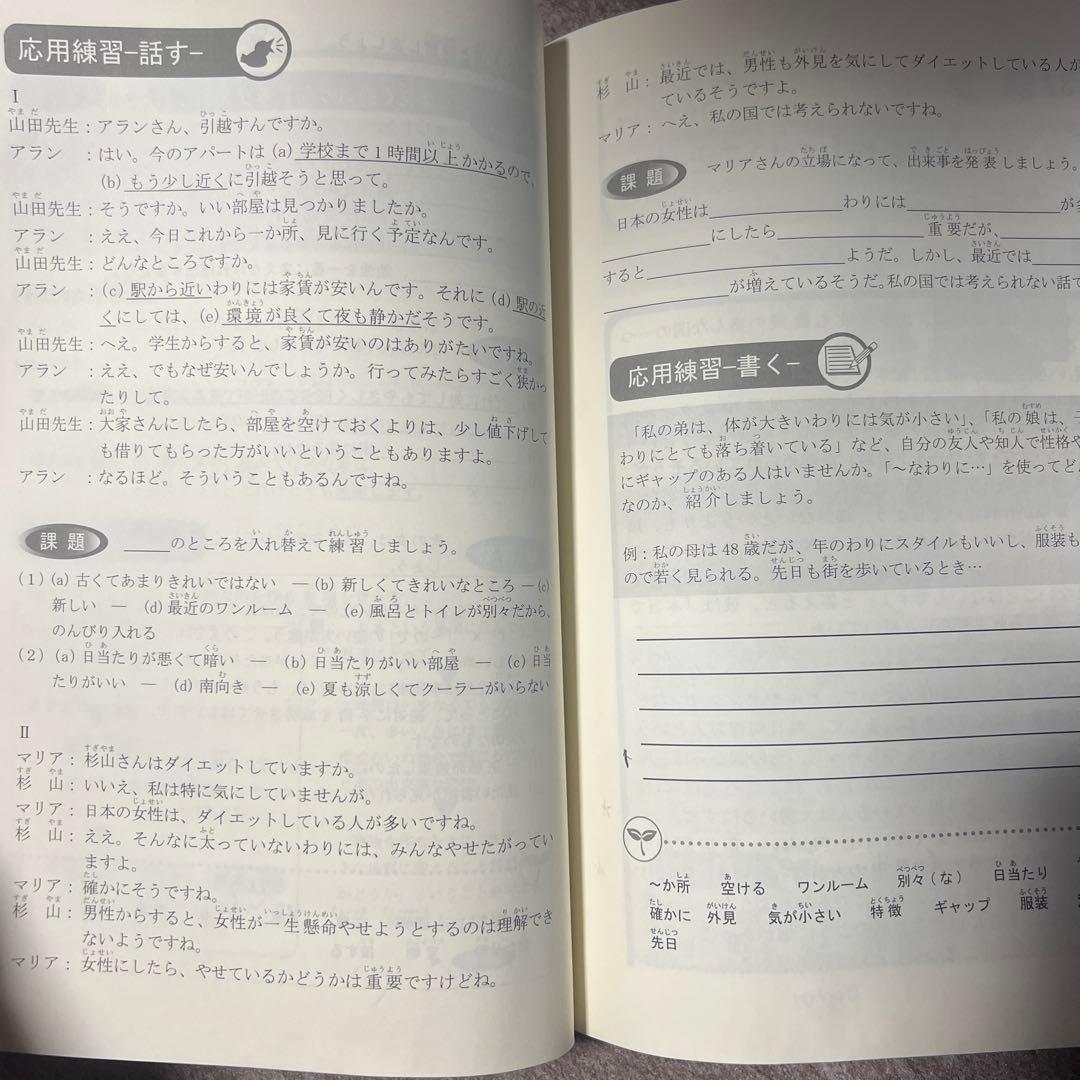 応用練習−話す−
I
山田先生：アランさん、引越すんですか。
アラン　：はい。今のアパートは (a) 学校まで1時間以上かかるので、
(b) もう少し近くに引越そうと思って。
山田先生：そうですか。いい部屋は見つかりましたか。
アラン　：ええ、今日これから一か所、見に行く予定なんです。
山田先生：どんなところですか。
アラン　：(c) 駅から近いわりには家賃が安いんです。それに (d) 駅の近
くにしては、(e) 環境が良くて夜も静かだそうです。
山田先生：へえ。学生からすると、家賃が安いのはありがたいですね。
アラン　：ええ、でもなぜ安いんでしょうか。行ってみたらすごく狭かっ
たりして。
山田先生：大家さんにしたら、部屋を空けておくよりは、少し値下げして
も借りてもらった方がいいということもありますよ。
アラン　：なるほど。そういうこともあるんですね。
課題　＿＿＿のところを入れ替えて練習しましょう。
(1) (a) 古くてあまりきれいではない　—　(b) 新しくてきれいなところ　—　(c)
新しい　—　(d) 最近のワンルーム　—　(e) 風呂とトイレが別々だから、
のんびり入れる
(2) (a) 日当たりが悪くて暗い　—　(b) 日当たりがいい部屋　—　(c) 日当
たりがいい　—　(d) 南向き　—　(e) 夏も涼しくてクーラーがいらない
II
マリア：杉山さんはダイエットしていますか。
杉　山：いいえ、私は特に気にしていませんが。
マリア：日本の女性は、ダイエットしている人が多いですね。
杉　山：ええ。そんなに太っていないわりには、みんなやせたがってい
ますよ。
マリア：確かにそうですね。
杉　山：男性からすると、女性が一生懸命やせようとするのは理解でき
ないようですね。
マリア：女性にしたら、やせているかどうかは重要ですけどね。
杉　山：最近では、男性も外見を気にしてダイエットしている人が
ているそうですよ。
マリア：へえ、私の国では考えられないですね。
課題　マリアさんの立場になって、出来事を発表しましょう。
日本の女性は＿＿＿わりには＿＿＿が
＿＿＿にしたら＿＿＿重要だが、
すると＿＿＿ようだ。しかし、最近では
＿＿＿が増えているそうだ。私の国では考えられない話で
応用練習−書く−
「私の弟は、体が大きいわりには気が小さい」、「私の娘は、
わりにとても落ち着いている」など、自分の友人や知人で性格や
にギャップのある人はいませんか。「〜なわりに…」を使ってどん
なのか、紹介しましょう。
例：私の母は48歳だが、年のわりにスタイルもいいし、服装も
ので若く見られる。先日も街を歩いているとき…
〜か所　空ける　ワンルーム　別々（な）　日当たり
確かに　外見　気が小さい　特徴　ギャップ　服装
先日